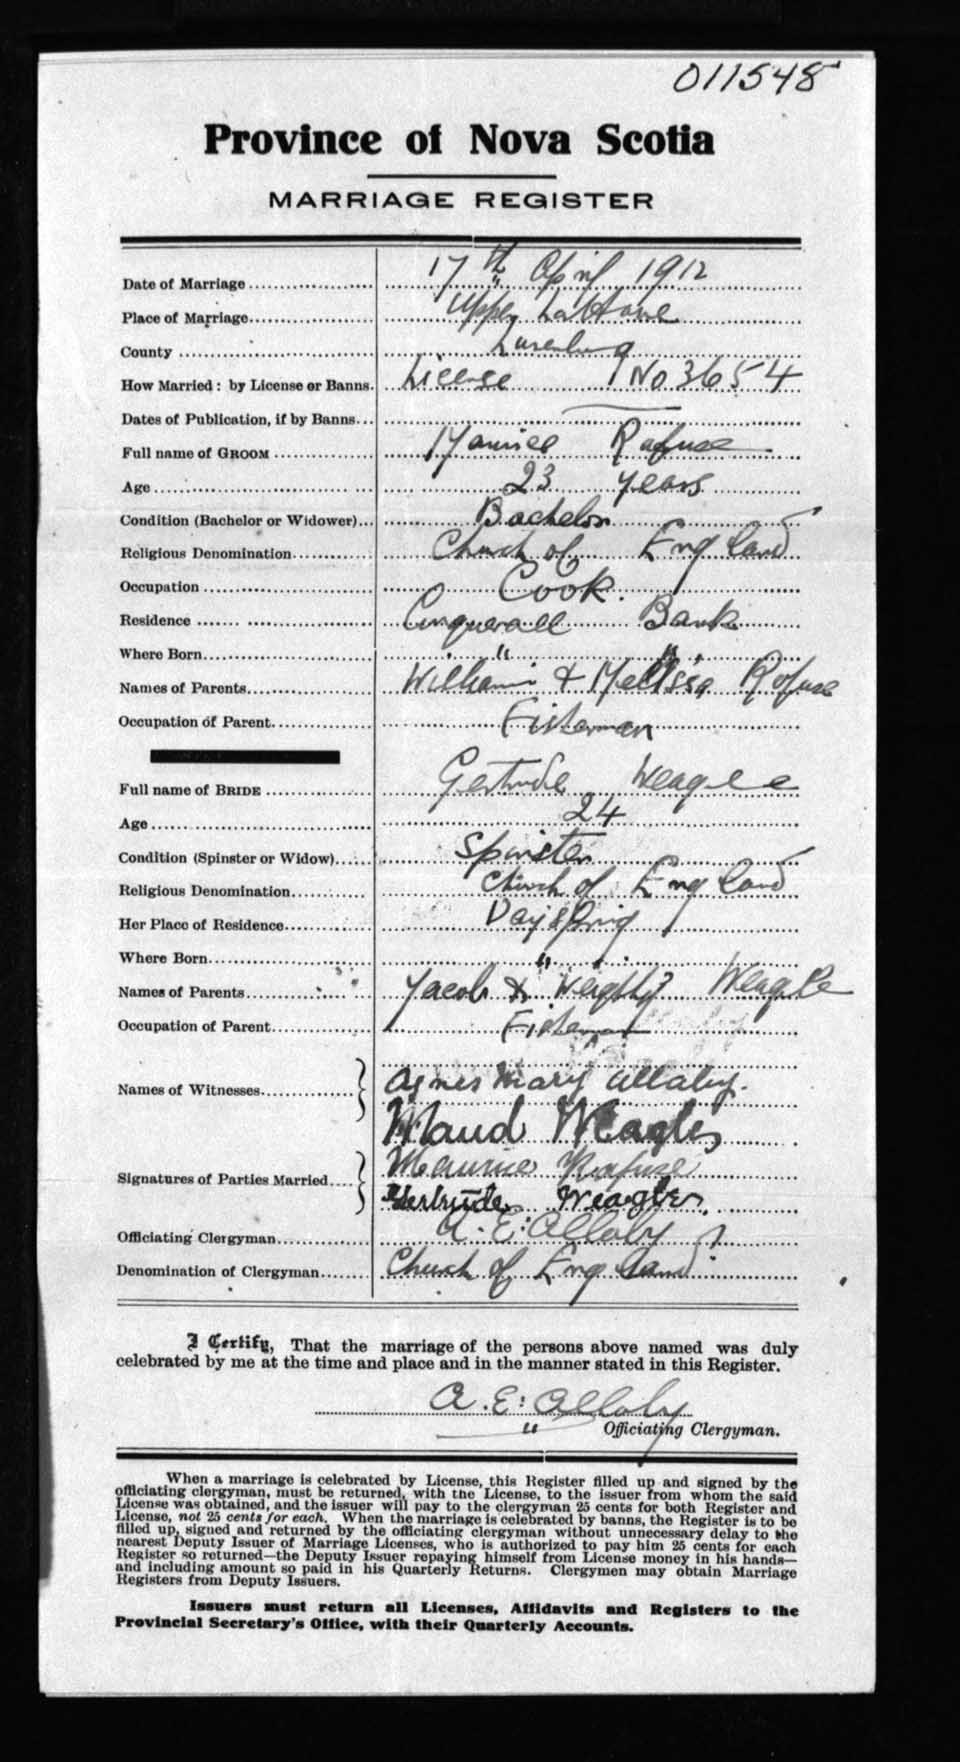 011548
Province of Nova Scotia
MARRIAGE REGISTER
Date of Marriage 17th April 1912
Place of Marriage Upper LaHave
County Lunenburg
How Married: by License or Banns. License No 3654
Dates of Publication, if by Banns —
Full name of GROOM Maurice Rafuse
Age 23 years
Condition (Bachelor or Widower) Bachelor
Religious Denomination Church of England
Occupation Cook.
Residence Conquerall Bank
Where Born " "
Names of Parents William & Melissa Rafuse
Occupation of Parent Fisherman
Full name of BRIDE Gertrude Weagle
Age 24
Condition (Spinster or Widow) Spinster
Religious Denomination Church of England
Her Place of Residence Dayspring
Where Born "
Names of Parents Jacob & Weagle
Occupation of Parent Fisherman
Names of Witnesses Agnes Mary Allaby.
Maud Weagle
Signatures of Parties Married Maurice Rafuse
Gertrude Weagle.
Officiating Clergyman A. E: Allaby
Denomination of Clergyman Church of England
I Certify, That the marriage of the persons above named was duly
celebrated by me at the time and place and in the manner stated in this Register.
A. E: Allaby
" Officiating Clergyman.
When a marriage is celebrated by License, this Register filled up and signed by the
officiating clergyman, must be returned, with the License, to the issuer from whom the said
License was obtained, and the issuer will pay to the clergyman 25 cents for both Register and
License, not 25 cents for each. When the marriage is celebrated by banns, the Register is to be
filled up, signed and returned by the officiating clergyman without unnecessary delay to the
nearest Deputy Issuer of Marriage Licenses, who is authorized to pay him 25 cents for each
Register so returned—the Deputy Issuer repaying himself from License money in his hands—
and including amount so paid in his Quarterly Returns. Clergymen may obtain Marriage
Registers from Deputy Issuers.
Issuers must return all Licenses, Affidavits and Registers to the
Provincial Secretary's Office, with their Quarterly Accounts.